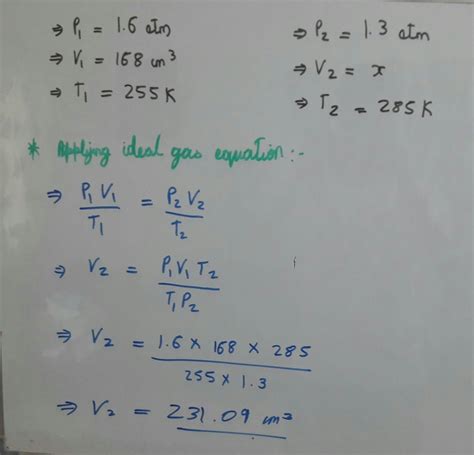 ⇒ P₁ = 1.6 atm
⇒ V₁ = 168 cm³
⇒ T₁ = 255 K
⇒ P₂ = 1.3 atm
⇒ V₂ = x
⇒ T₂ = 285K
* Applying ideal gas equation :-
⇒ P₁V₁ / T₁ = P₂V₂ / T₂
⇒ V₂ = P₁V₁T₂ / T₁P₂
⇒ V₂ = 1.6 × 168 × 285 / 255 × 1.3
⇒ V₂ = 231.09 cm³